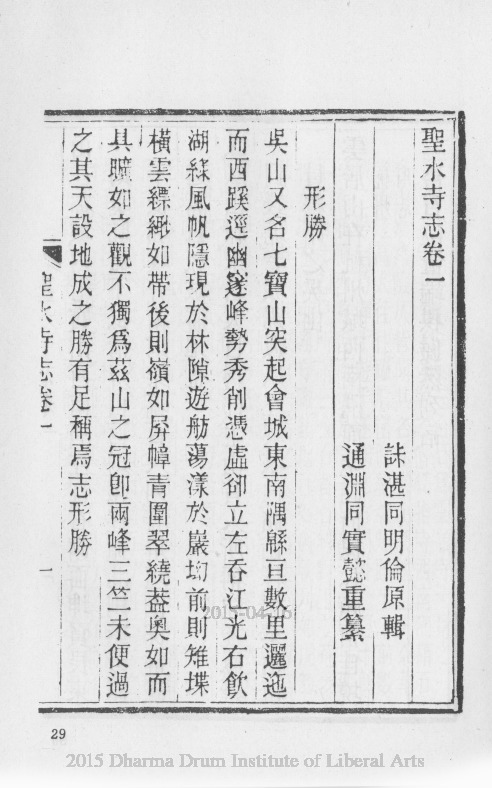 聖水寺志卷一
誅湛同明倫原輯
通淵同實懿重纂
形勝
吳山又名七寶山突起會城東南隅緜亘數里邐迤
而西蹊逕幽窱峰勢秀削憑虛卻立左吞江光右飲
湖綠風帆隱現於林隙遊舫蕩漾於巖坳前則雉堞
橫雲縹緲如帶後則嶺如屏幛青圍翠繞葢奧如而
具曠如之觀不獨爲茲山之冠卽兩峰三竺未便過
之其天設地成之勝有足稱焉志形勝
聖水寺志卷一
一
2015-04-16
29
2015 Dharma Drum Institute of Liberal Arts